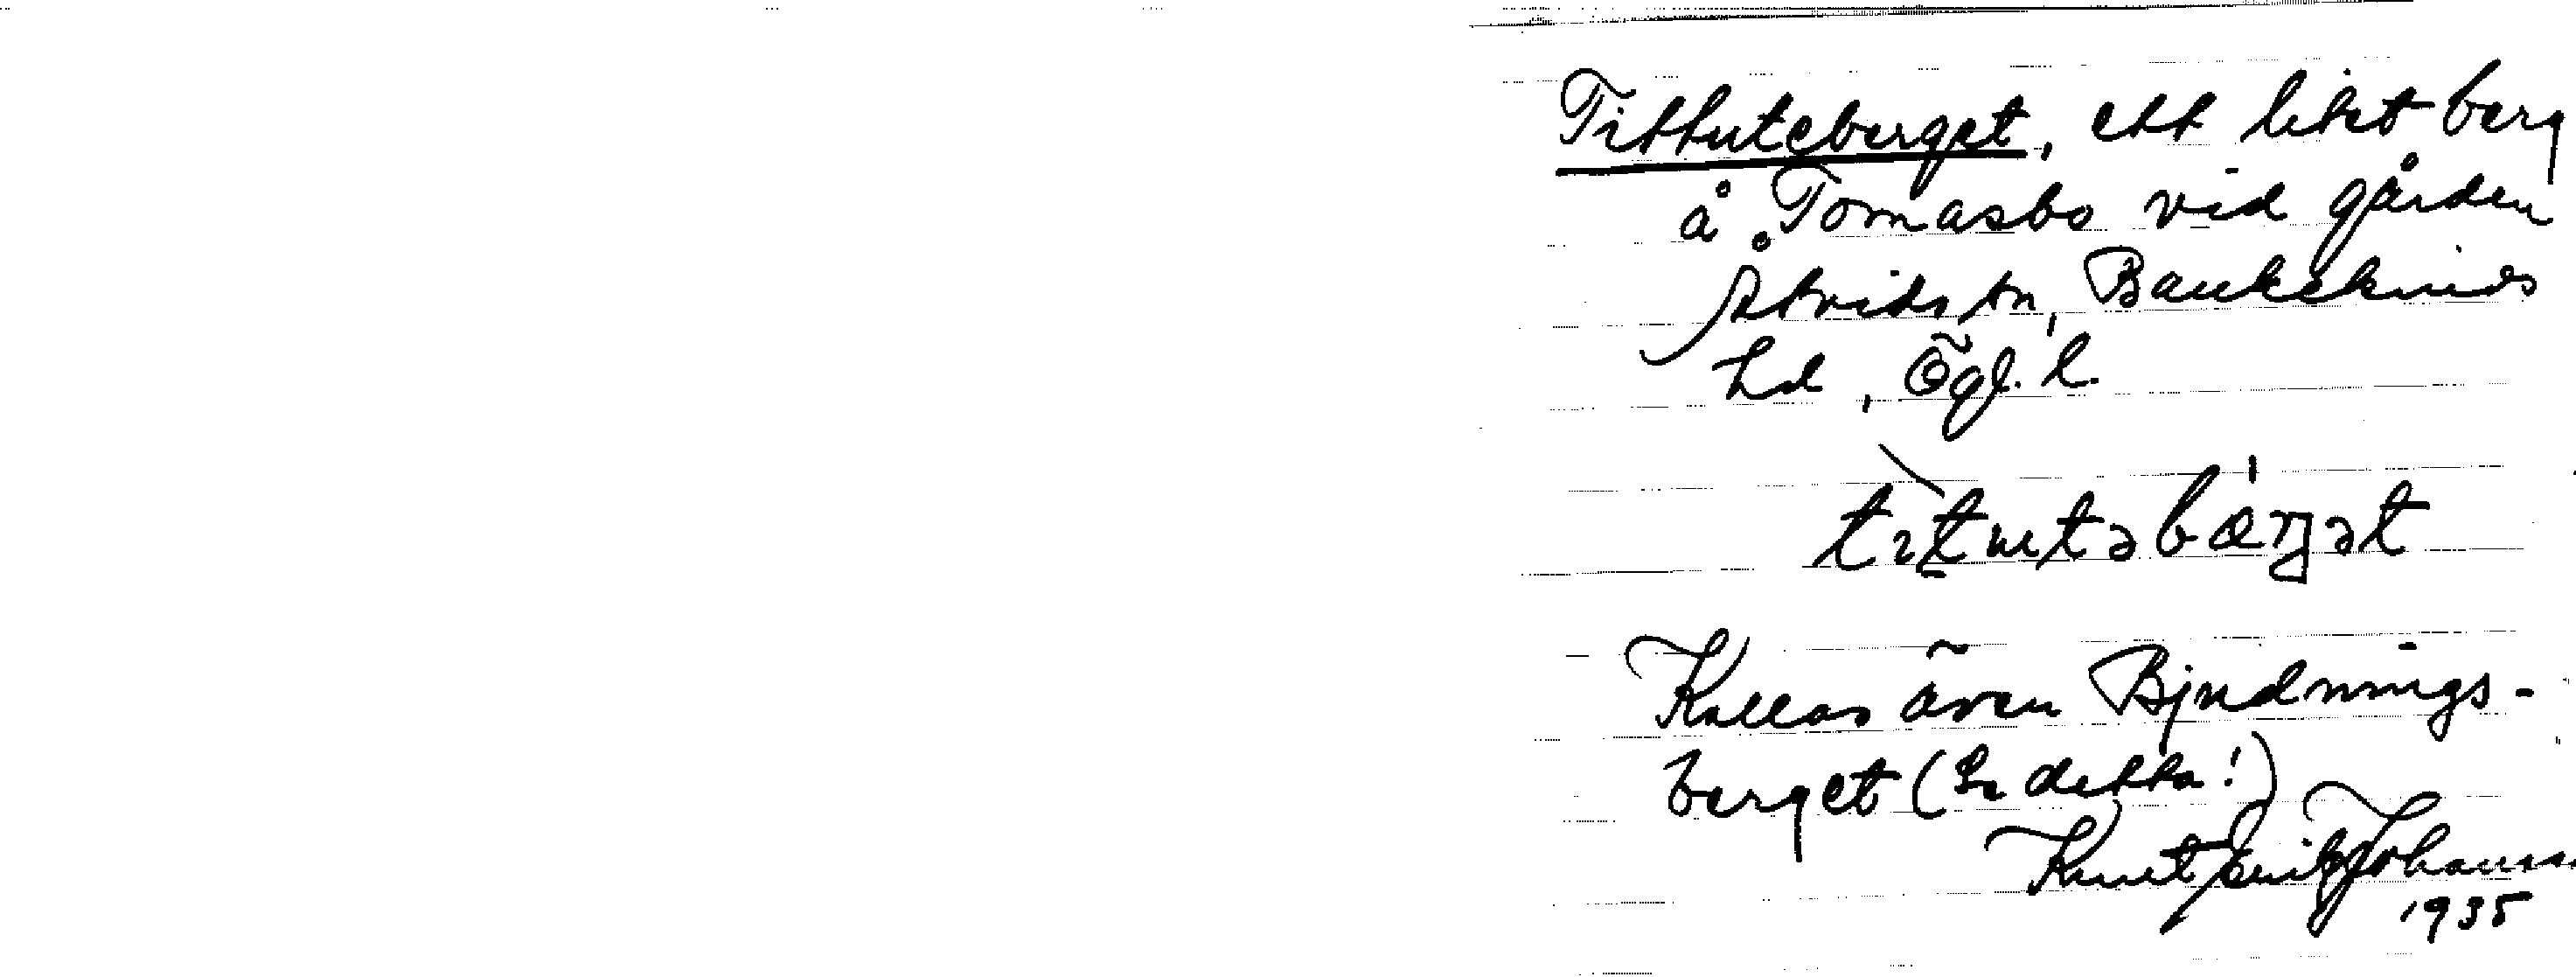 Tittuteberget, ett litet berg
å Tomasbo vid gården
Åtvids sn, Bankekinds
hd, Ögl. l.
tìtutəbærjət
Kallas även Bjudnings-
berget (Se detta!)
Knut Johanss
1935